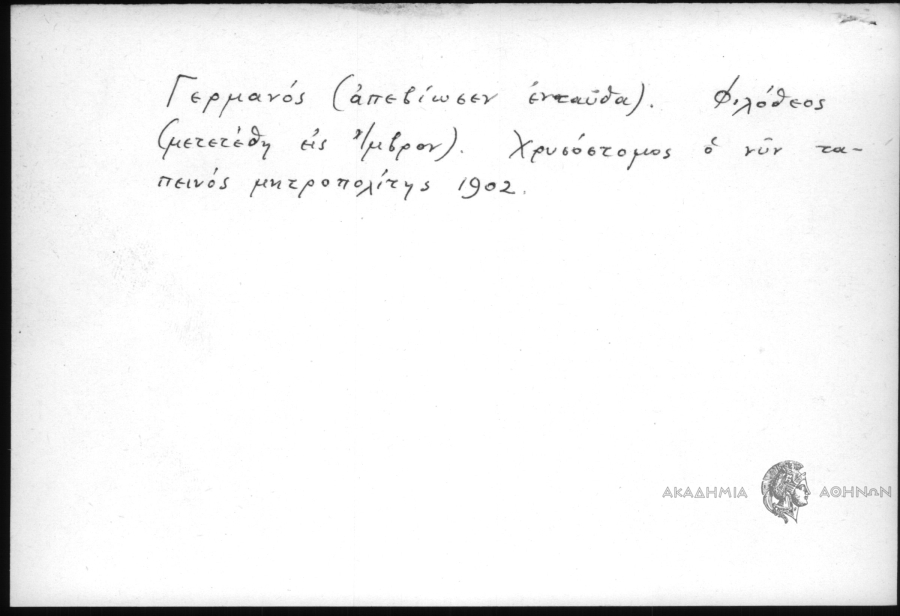 Γερμανός (ἀπεβίωσεν ἐνταῦθα). Φιλόθεος
(μετετέθη εἰς Ἴμβρον). Χρυσόστομος ὁ νῦν τα-
πεινός μητροπολίτης 1902.
ΑΚΑΔΗΜΙΑ ΑΘΗΝΩΝ